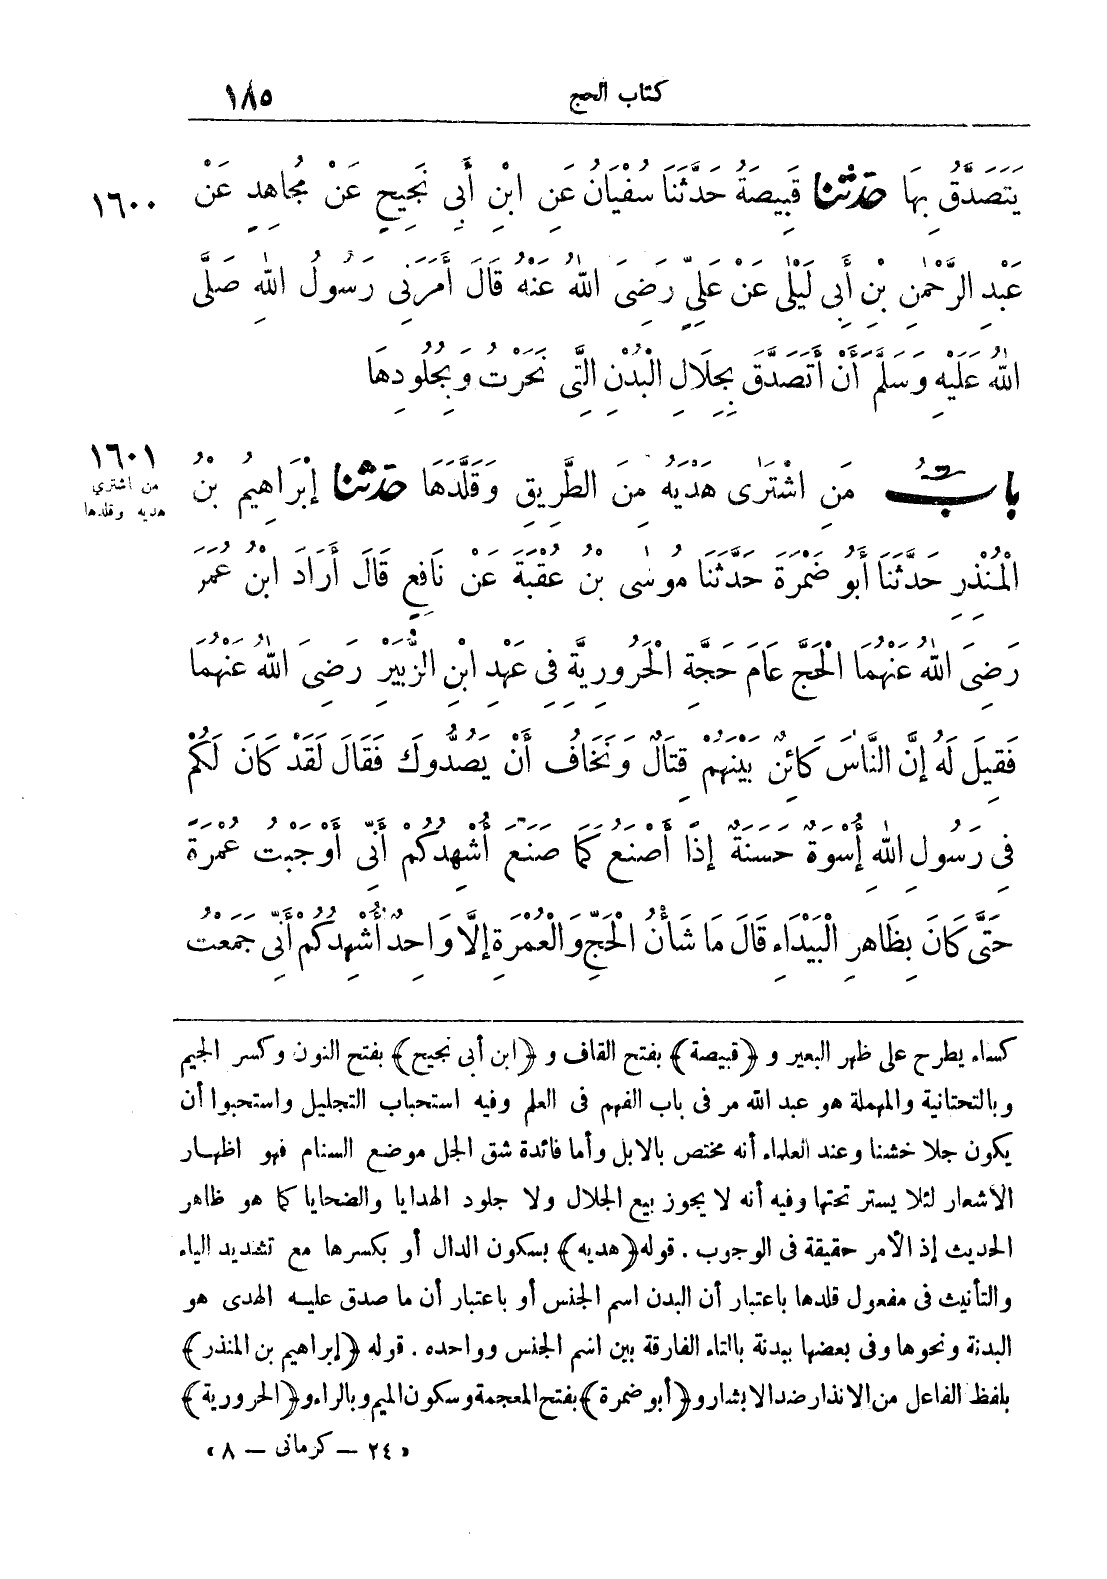 كتاب الحج ١٨٥
يَتَصَدَّقُ بِهَا حَدَّثَنَا قَبِيصَةُ حَدَّثَنَا سُفْيَانُ عَنِ ابْنِ أَبِي نَجِيحٍ عَنْ مُجَاهِدٍ عَنْ
١٦٠٠
عَبْدِ الرَّحْمٰنِ بْنِ أَبِي لَيْلَى عَنْ عَلِيٍّ رَضِيَ اللهُ عَنْهُ قَالَ أَمَرَنِي رَسُولُ اللهِ صَلَّى
اللهُ عَلَيْهِ وَسَلَّمَ أَنْ أَتَصَدَّقَ بِجِلَالِ الْبُدْنِ الَّتِي نَحَرْتُ وَبِجُلُودِهَا
بَابُ مَنِ اشْتَرَى هَدْيَهُ مِنَ الطَّرِيقِ وَقَلَّدَهَا حَدَّثَنَا إِبْرَاهِيمُ بْنُ
١٦٠١
من اشترى
هديه وقلدها
الْمُنْذِرِ حَدَّثَنَا أَبُو ضَمْرَةَ حَدَّثَنَا مُوسَى بْنُ عُقْبَةَ عَنْ نَافِعٍ قَالَ أَرَادَ ابْنُ عُمَرَ
رَضِيَ اللهُ عَنْهُمَا الْحَجَّ عَامَ حَجَّةِ الْحَرُورِيَّةِ فِي عَهْدِ ابْنِ الزُّبَيْرِ رَضِيَ اللهُ عَنْهُمَا
فَقِيلَ لَهُ إِنَّ النَّاسَ كَائِنٌ بَيْنَهُمْ قِتَالٌ وَنَخَافُ أَنْ يَصُدُّوكَ فَقَالَ لَقَدْ كَانَ لَكُمْ
فِي رَسُولِ اللهِ إِسْوَةٌ حَسَنَةٌ إِذًا أَصْنَعُ كَمَا صَنَعَ أُشْهِدُكُمْ أَنِّي أَوْجَبْتُ عُمْرَةً
حَتَّى كَانَ بِظَاهِرِ الْبَيْدَاءِ قَالَ مَا شَأْنُ الْحَجِّ وَالْعُمْرَةِ إِلَّا وَاحِدٌ أُشْهِدُكُمْ أَنِّي جَمَعْتُ
كساء يطرح على ظهر البعير و ﴿قبيصة﴾ بفتح القاف و ﴿ابن أبى نجيح﴾ بفتح النون وكسر الجيم
وبالتحتانية والمهملة هو عبد الله مر فى باب الفهم فى العلم وفيه استحباب التجليل واستحبوا أن
يكون جلا خشنا وعند العلماء أنه مختص بالابل وأما فائدة شق الجل موضع السنام فهو اظهار
الأشعار لئلا يستر تحتها وفيه أنه لا يجوز بيع الجلال ولا جلود الهدايا والضحايا كما هو ظاهر
الحديث إذ الأمر حقيقة فى الوجوب . قوله ﴿هديه﴾ بسكون الدال أو بكسرها مع تشديد الياء
والتأنيث فى مفعول قلدها باعتبار أن البدن اسم الجنس أو باعتبار أن ما صدق عليه الهدى هو
البدنة ونحوها وفى بعضها ببدنة بالتاء الفارقة بين اسم الجنس وواحده . قوله ﴿إبراهيم بن المنذر﴾
بلفظ الفاعل من الانذار ضد الابشار و ﴿أبو ضمرة﴾ بفتح المعجمة وسكون الميم وبالراء و ﴿الحرورية﴾
«٢٤ - كرمانى - ٨»